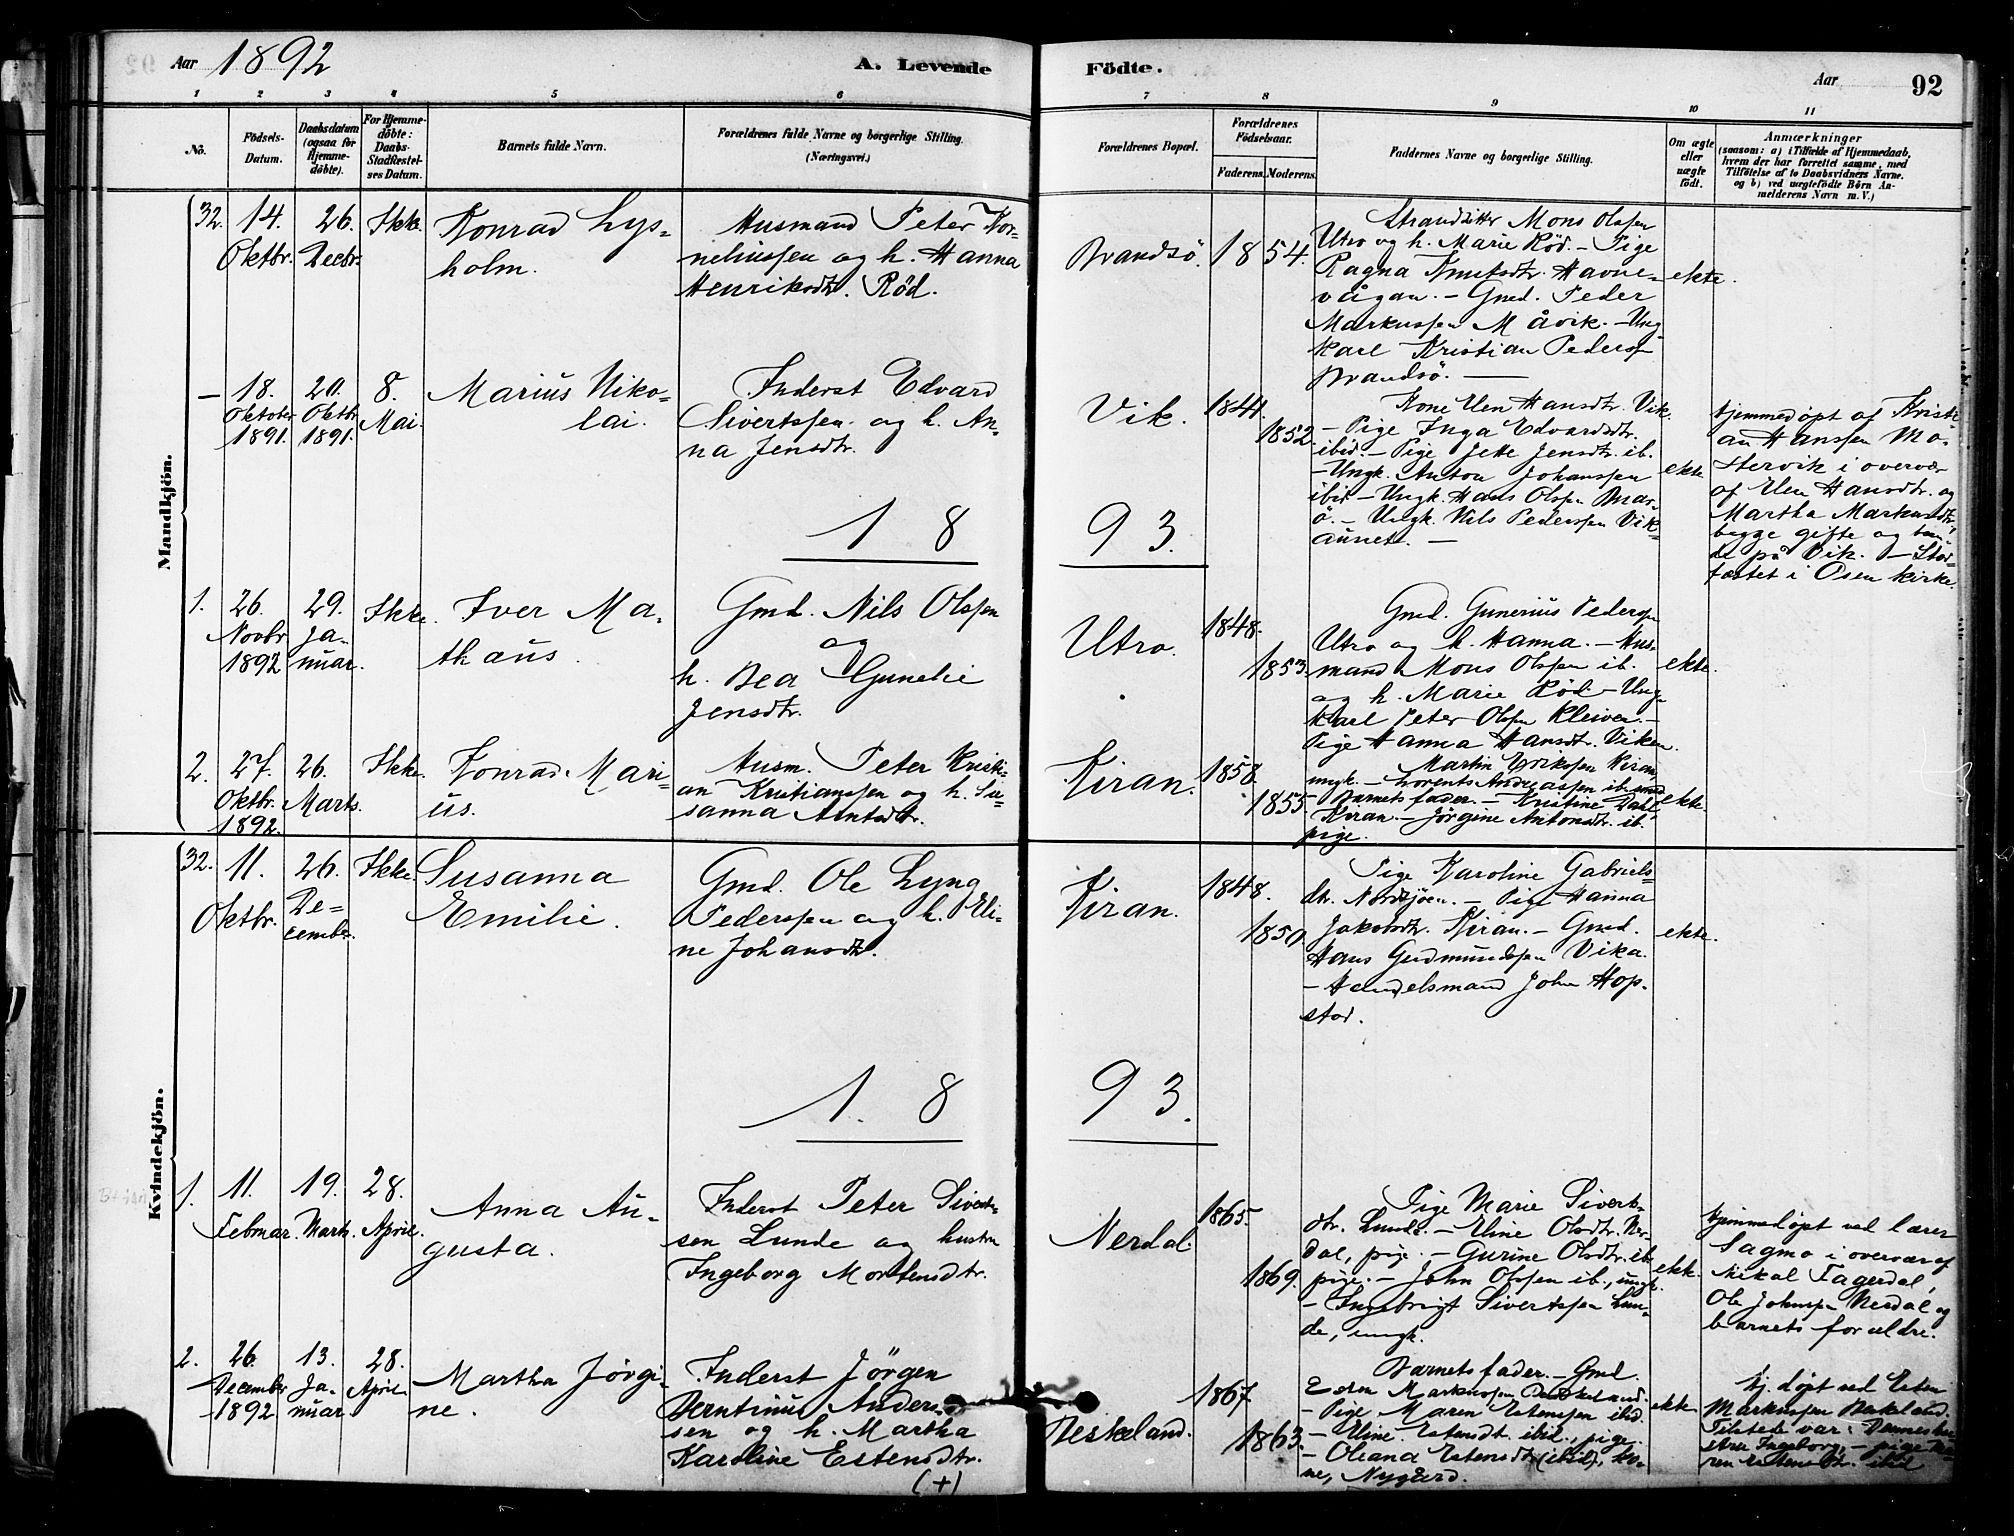 Aar 1892
A. Levende
Födte.
Aar
92
1
2
3
4
5
6
7
8
9
10
11
No.
Födsels-
Datum.
Daabsdatum
(ogsaa for
Hjemme-
döbte).
For Hjemme-
döbte:
Daabs-
Stadfæstel-
ses Datum.
Barnets fulde Navn.
Forældrenes fulde Navne og borgerlige Stilling
(Næringsvei.)
Forældrenes Bopæl.
Forældrenes
Födselsaar.
Faderens.
Moderens.
Faddernes Navne og borgerlige Stilling.
Om ægte
eller
uægte
födt.
Anmærkninger
(saasom: a) i Tilfælde af Hjemmedaab,
hvem der har forrettet samme, med
Tilföielse af to Daabsvidners Navne.
og b) ved uægtefödte Börn An-
melderens Navn m. V.)
Mandkjön.
32.
14.
Oktbr.
26.
Decbr.
Ikke.
Konrad Lys-
holm.
Husmand Peter Kor-
neliussen og h. Hanna
Henriksdtr. Rød.
Brandsö.
18 54.
Strandsitter Mons Olssen
Utro og h. Marie Rød. - Pige
Ragna Knutsdtr. Havne-
vågan. - Gmd. Peder
Markussen Måvik. - Ung-
karl Kristian Peders.
Brandsö. -
ekte.
-
18.
Oktober
1891.
20.
Oktbr.
1891.
8.
Mai.
Marius Niko-
lai.
Inderst Edvard
Sivertssen og h. An-
na Jensdtr.
Vik.
1844.
1852.
Kone Elen Hansdtr. Vik.
- Pige Inga Edvardsdtr.
ibid. - Pige Jette Jensdtr. ib.
- Ungk. Anton Johanssen
ibid - Ungk. Hans Olssen
ö. - Ungk. Nils Pederssen Vik-
aunet. -
ekte
Hjemmedøpt af Kristi-
an Hanssen
i overvær
af Elen Hansdtr. og
Martha Markusdtr,
begge gifte og boen-
de på Vik. - Stad-
fæstet i Osen kirke.
18
93.
1.
26.
Novbr
1892
29.
Ja-
nuar.
Ikke.
Iver Ma-
thæus.
Gmd. Nils Olssen
og
h. Bea Gunelie
Jensdtr.
Utro.
1848.
1853.
Gmd. Gunerius Pederssen
Utro og h. Hanna. - Hus-
mand Mons Olssen ib.
og h. Marie Rød. - Ung-
karl Peter Olssen Kleiven. -
Pige Hanna Hansdtr. Viken.
ekte.
2.
27.
Oktbr.
1892.
26.
Marts.
Ikke.
Konrad Mari-
us.
Husm. Peter Kristi-
an Kristianssen og h. Su-
sanna Arntsdtr.
Kiran.
1858.
1855.
Martin Erikssen Kiran,
ungk. - Lorents Andreassen ib. med
Barnets fader. - Kristine Dahl,
Kiran. - Jørgine Antonsdtr. ib.
pige.
ekte
Kvindekjön.
32.
11.
Oktbr.
26.
De-
cember.
Ikke.
Susanna
Emilie.
Gmd. Ole Lyng
Pederssen og h. Eli-
ne Johansdtr.
Kiran.
1848.
1850
Pige Karoline Gabriels-
dtr. Nordsjøen. - Pige Hanna
Jakobsdtr. Kiran. - Gmd.
Hans Gudmundssen Vika.
- Handelsmand John Hop-
stad.
ekte.
1. 8
93.
1.
11.
Februar.
19.
Marts.
28.
April.
Anna Au-
gusta.
Inderst Peter Sivert-
sen Lunde og hustru
Ingeborg Mortensdtr.
Nerdal.
1865.
1869.
Pige Marie Siverts-
dtr. Lunde. - Eline Olsdtr. Ner-
dal, pige. - Gurine Olsdtr. ib.
pige. - John Olssen ib., ungk.
- Ingebrigt Sivertssen Lun-
de, ungk.
ekte.
Hjemmedøpt ved lærer
Sagmo i overvær af
Mikal Fagerdal,
Ole Johnssen Nerdal og
barnets forældre.
2.
26.
December
1892
13.
Ja-
nuar
28.
April
Martha Jörgi-
ne.
Inderst Jörgen
Berntinus Anders-
sen og h. Martha
Karoline Estensdtr.
(+)
Beskeland.
1867.
1863.
Barnets fader. - Gmd.
Esten Markussen Beskeland.
- Pige Maren Estenssen ibid.
- Eline Estensdt. ibid., pige.
- Oliana Estensdtr (ibid), ko-
ne, Nygård.
ekte
Hj. døpt ved Esten
Markussen Beskeland.
Tilstede var:
Ingeborg, - pige Ma-
ren Estensdtr. ibid